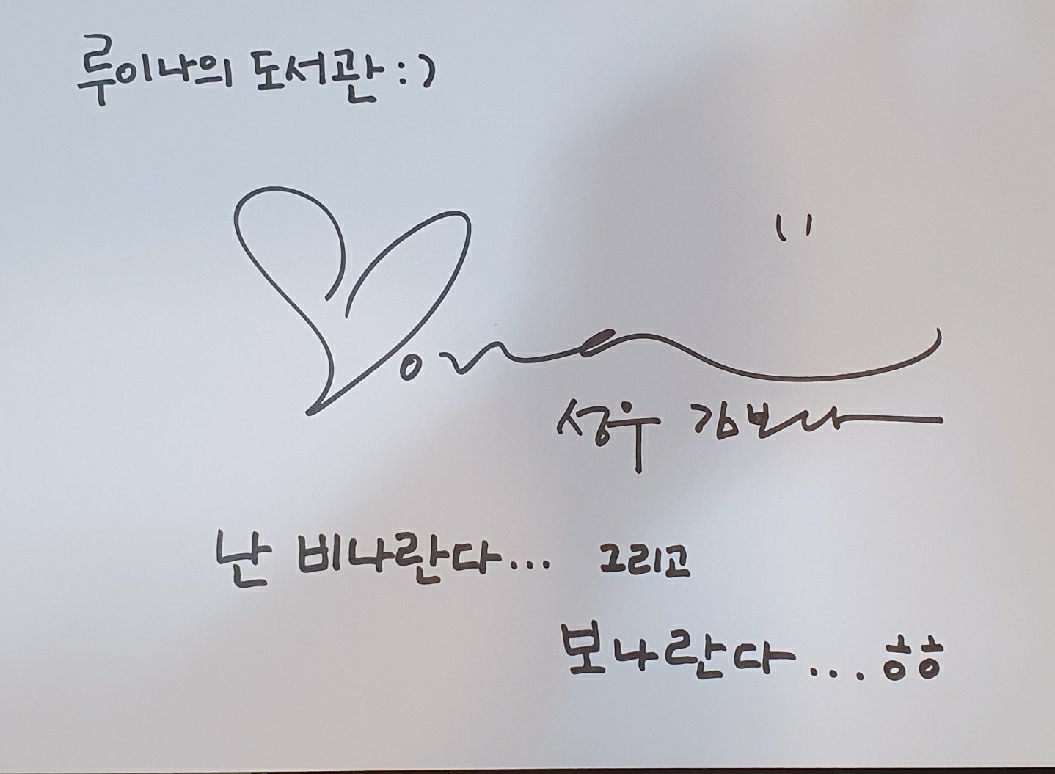 루이나의 도서관 :)
Bona
성우 김보나
난 비나란다... 그리고
보나란다... ㅎㅎ